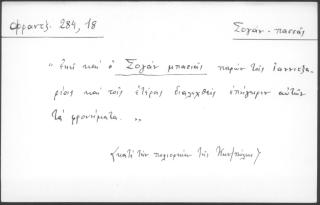 Φραντζ. 284, 18
Σογάν - πασσάς
„ ἐκεῖ καὶ ὁ Σογὰν μπασιὰς παρὼν τοῖς ἰαννιτζα-
ρίοις καὶ τοῖς ἑτέροις διαλεχθεὶς ἐπήγειρεν αὐτῶν
τὰ φρονήματα. „
<κατὰ τὴν πολιορκίαν τῆς Κων/πόλεως>